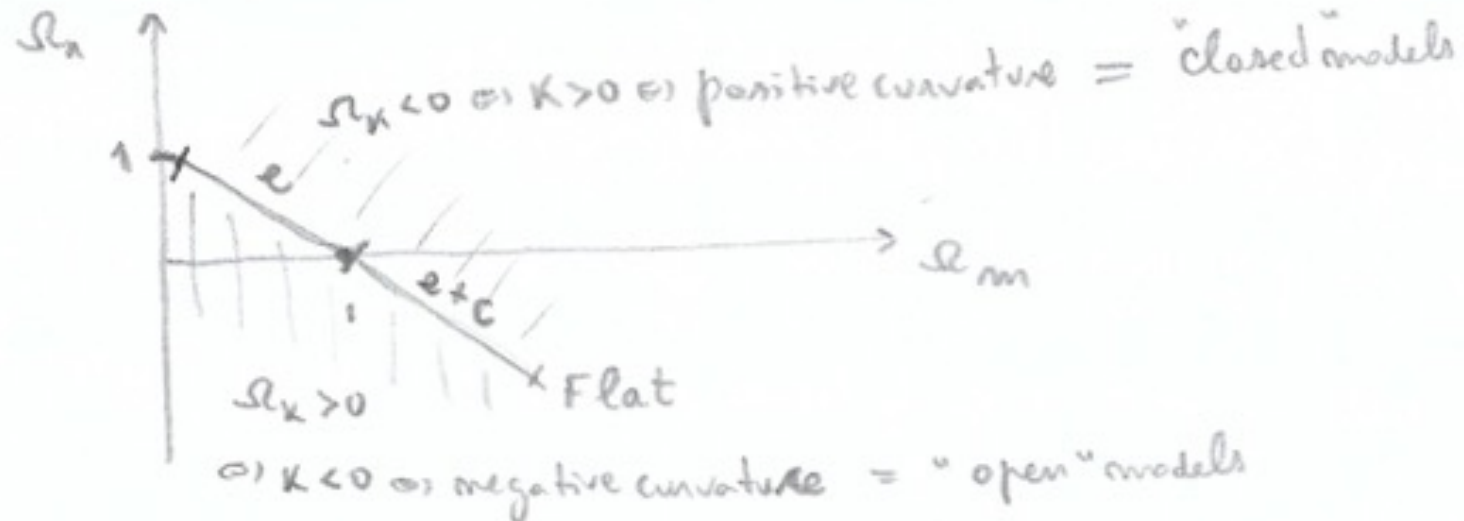 Ω_Λ
Ω_K <0 ⇔ K>0 ⇔ positive curvature = "closed" models
1
e
Ω_m
e+c
1
Flat
Ω_K >0
⇔ K<0 ⇔ negative curvature = "open" models